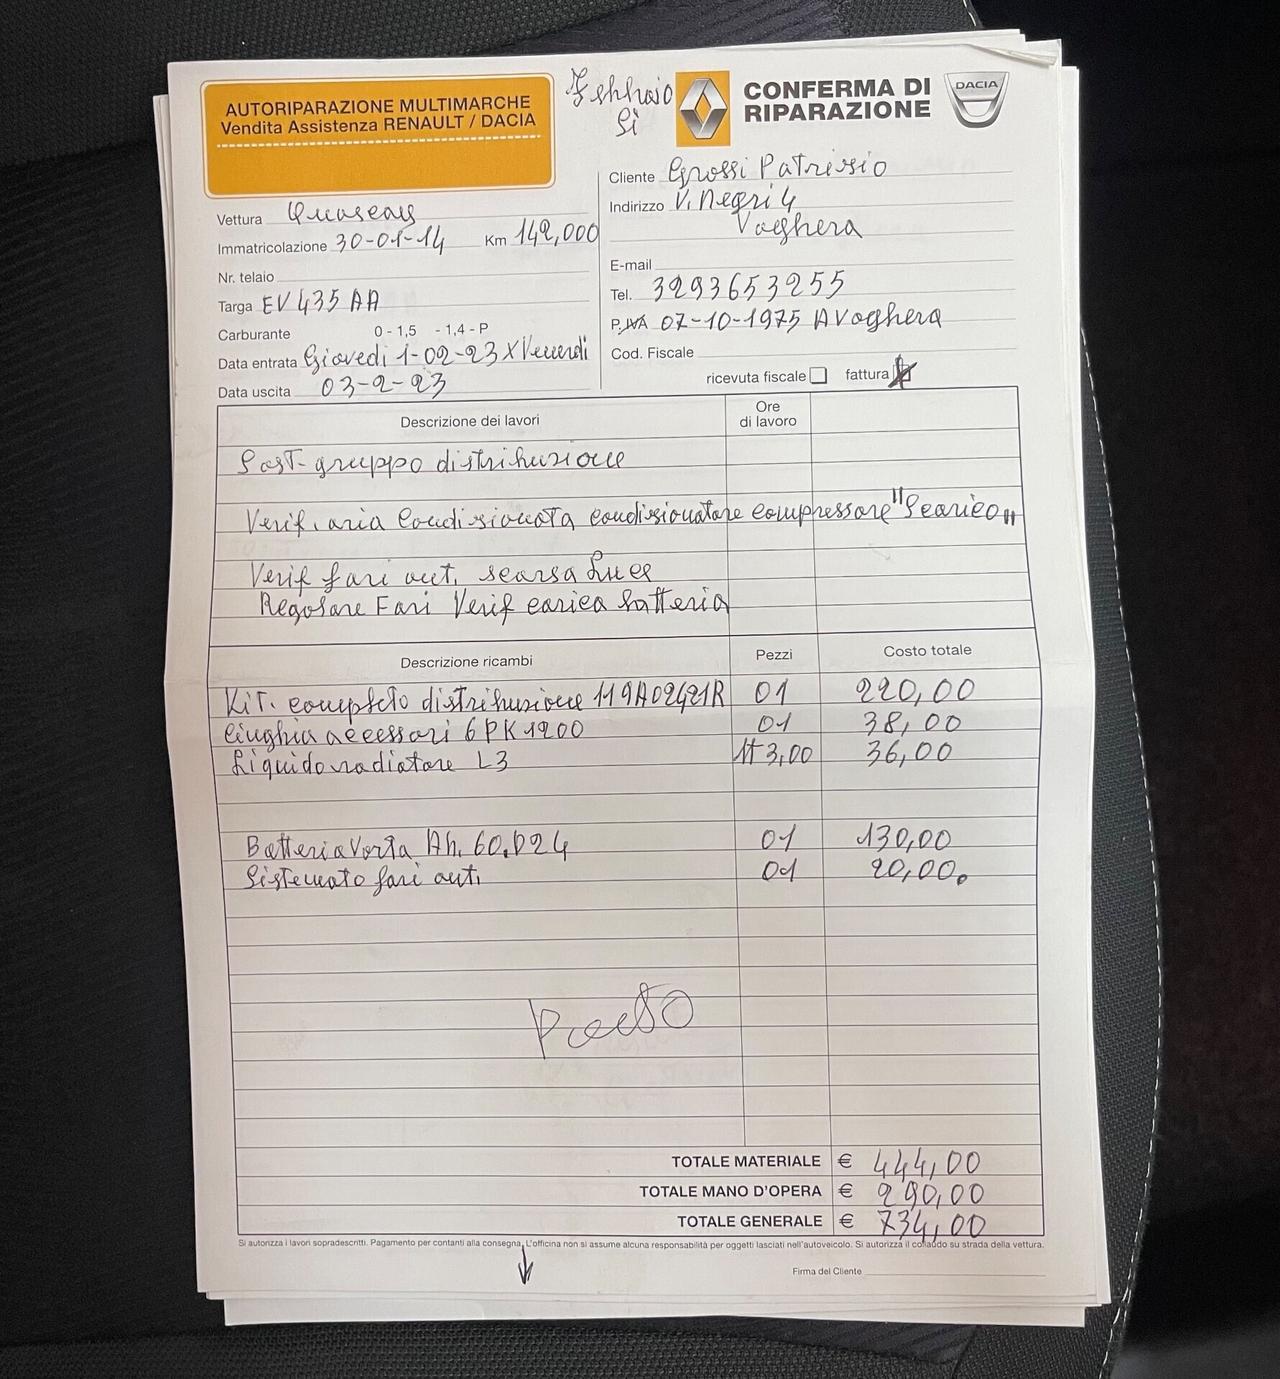 AUTORIPARAZIONE MULTIMARCHE
Vendita Assistenza RENAULT / DACIA
Febbraio
Si
CONFERMA DI
RIPARAZIONE
DACIA
Vettura Quaseays
Immatricolazione 30-01-14 Km 142,000
Nr. telaio
Targa EV435AA
Carburante 0 - 1,5 - 1,4 - P
Data entrata Giovedi 1-02-23 X Venerdi
Data uscita 03-2-23
Cliente Grossi Patrissio
Indirizzo V. Negri 4
Voghera
E-mail
Tel. 3293653255
P. IVA 07-10-1975 A Voghera
Cod. Fiscale
ricevuta fiscale fattura
Descrizione dei lavori Ore di lavoro
Sost- gruppo distribusione
Verif. aria Condisionata condisionatore compressore "Scarico"
Verif fari aut. scarsa Luce
Regolare Fari Verif carica batteria
Descrizione ricambi Pezzi Costo totale
KiT. completo distribusione 119A02421R 01 220,00
Cinghia accessori 6PK1200 01 38,00
Liquido radiatore L3 lt 3,00 36,00
Batteria Varta Ah. 60.D24 01 130,00
Sistemato fari aut. 01 20,00.
TOTALE MATERIALE € 444,00
TOTALE MANO D'OPERA € 290,00
TOTALE GENERALE € 734,00
Si autorizza i lavori sopradescritti. Pagamento per contanti alla consegna. L'officina non si assume alcuna responsabilità per oggetti lasciati nell'autoveicolo. Si autorizza il collaudo su strada della vettura.
Firma del Cliente